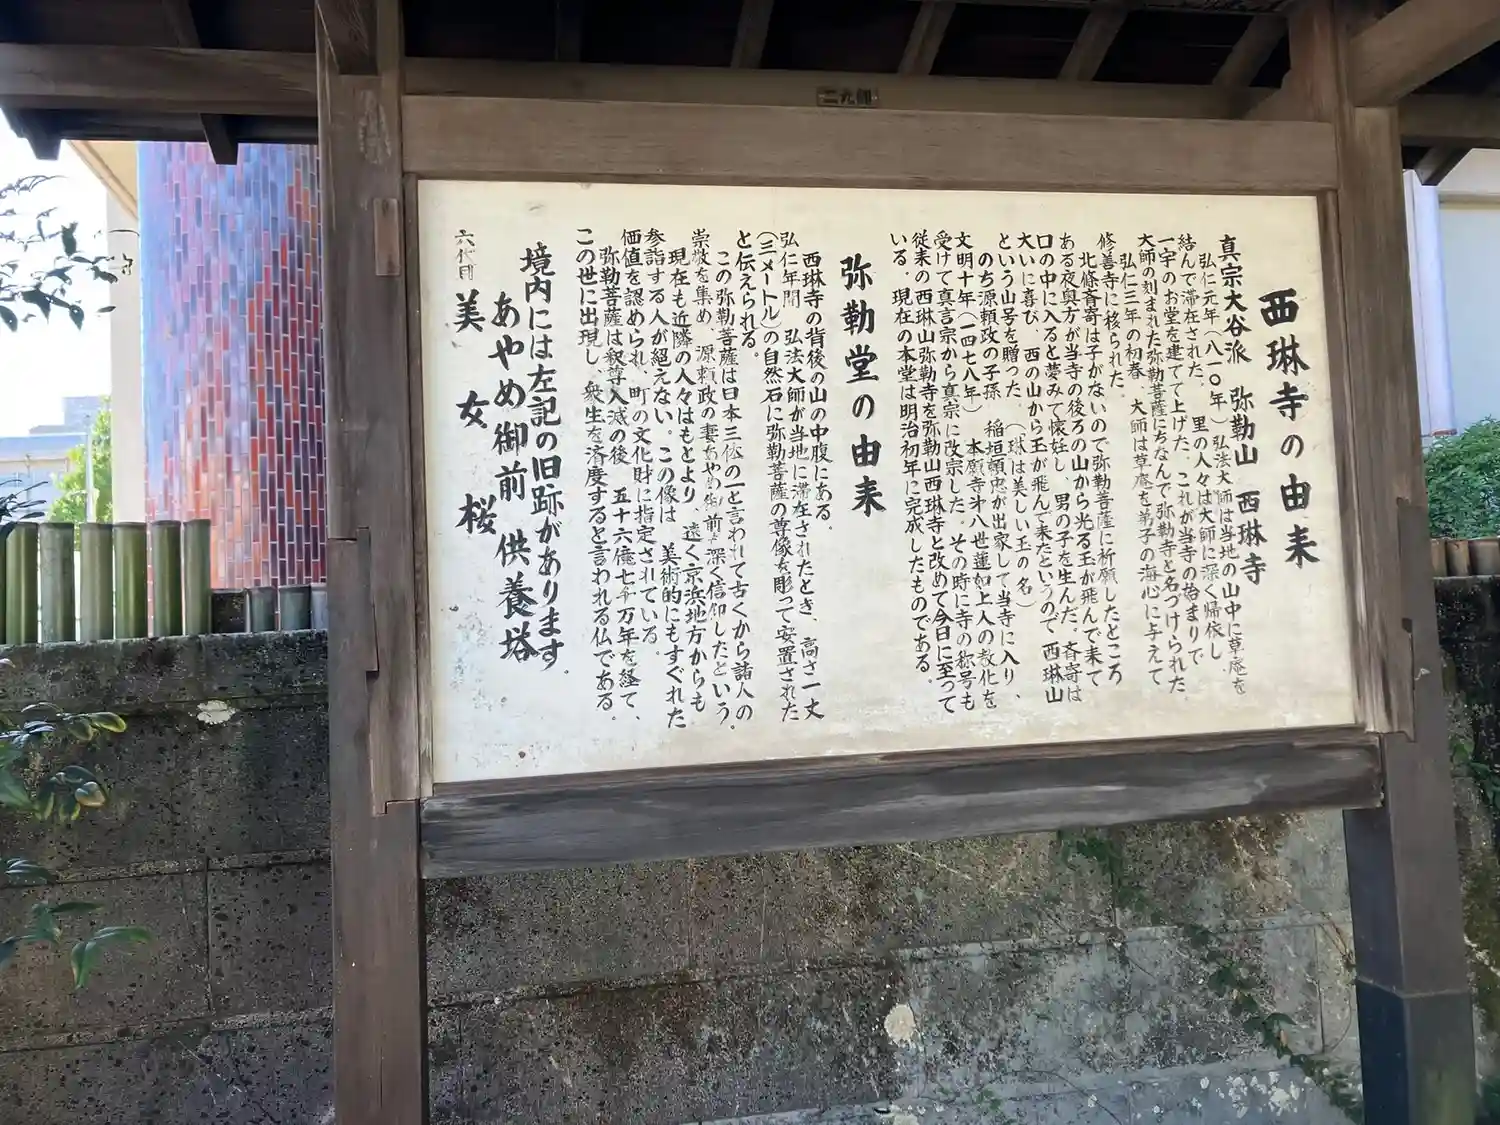 二九御
西琳寺の由来
真宗大谷派 弥勒山 西琳寺
弘仁元年(八一〇年)弘法大師は当地の山中に草庵を
結んで滞在された。里の人々は大師に深く帰依し
一宇のお堂を建てて上げた。これが当寺の始まりで
大師の刻まれた弥勒菩薩にちなんで弥勒寺と名づけられた。
弘仁三年の初春 大師は草庵を弟子の海心に与えて
修善寺に移られた。
北條斉寄は子がないので弥勒菩薩に祈願したところ
ある夜奥方が当寺の後ろの山から光る玉が飛んで来て
口の中に入ると夢みて懐妊し、男の子を生んだ。斉寄は
大いに喜び、西の山から玉が飛んで来たというので 西琳山
という山号を贈った。(球は美しい玉の名)
のち源頼政の子孫 稲垣頼忠が出家して当寺に入り、
文明十年(一四七八年) 本願寺第八世蓮如上人の教化を
受けて真言宗から真宗に改宗した。その時に寺の称号も
従来の西琳山弥勒寺を弥勒山西琳寺と改めて今日に至って
いる。現在の本堂は明治初年に完成したものである。
弥勒堂の由来
西琳寺の背後の山の中腹にある。
弘仁年間 弘法大師が当地に滞在されたとき、高さ一丈
(三メートル)の自然石に弥勒菩薩の尊像を彫って安置された
と伝えられる。
この弥勒菩薩は日本三体の一と言われて古くから諸人の
崇敬を集め、源頼政の妻あやめ御前も深く信仰したという。
現在も近隣の人々はもとより、遠く京浜地方からも
参詣する人が絶えない。この像は 美術的にもすぐれた
価値を認められ、町の文化財に指定されている。
弥勒菩薩は釈尊入滅の後 五十六億七千万年を経て、
この世に出現し、衆生を済度すると言われる仏である。
境内には左記の旧跡があります。
あやめ御前 供養塔
六代目 美女桜